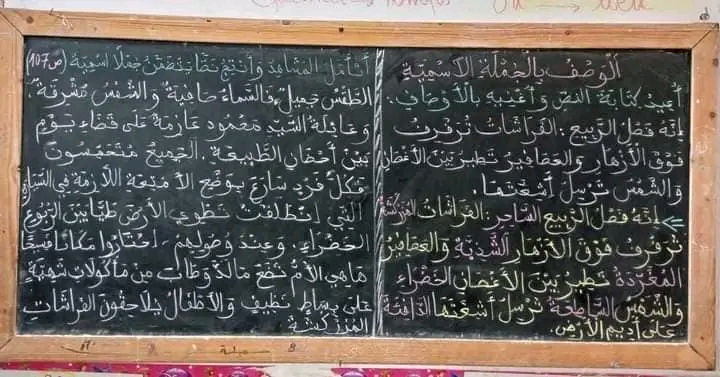 الْوَصْفُ بِالْجُمْلَةِ الْاسْمِيَّةِ
أُعِيدُ كِتَابَةَ النَّصِّ وَأُغْنِيهِ بِالْأَوْصَافِ:
إِنَّهُ فَصْلُ الرَّبِيعِ: الْفَرَاشَاتُ تُرَفْرِفُ
فَوْقَ الْأَزْهَارِ وَالْعَصَافِيرُ تَطِيرُ بَيْنَ الْأَغْصَانِ
وَالشَّمْسُ تُرْسِلُ أَشِعَّتَهَا.
إِنَّهُ فَصْلُ الرَّبِيعِ السَّاحِرِ: الْفَرَاشَاتُ الْمُزَرْكَشَةُ
تُرَفْرِفُ فَوْقَ الْأَزْهَارِ الشَّذِيَّةِ وَالْعَصَافِيرُ
الْمُغَرِّدَةُ تَطِيرُ بَيْنَ الْأَغْصَانِ الْخَضْرَاءِ
وَالشَّمْسُ السَّاطِعَةُ تُرْسِلُ أَشِعَّتَهَا الدَّافِئَةَ
عَلَى أَدِيمِ الْأَرْضِ.
أَتَأَمَّلُ الْمَشَاهِدَ وَأُنْتِجُ نَصًّا يَتَضَمَّنُ جُمَلًا اسْمِيَّةً (ص107)
الطَّقْسُ جَمِيلٌ، فَالسَّمَاءُ صَافِيَةٌ وَالشَّمْسُ مُشْرِقَةٌ.
وَعَائِلَةُ السَّيِّدِ مَحْمُودٍ عَازِمَةٌ عَلَى قَضَاءِ يَوْمٍ
بَيْنَ أَحْضَانِ الطَّبِيعَةِ. الْجَمِيعُ مُتَحَمِّسُونَ
فَكُلُّ فَرْدٍ سَارَعَ بِوَضْعِ الْأَمْتِعَةِ اللَّازِمَةِ فِي السَّيَّارَةِ
الَّتِي انْطَلَقَتْ تَطْوِي الْأَرْضَ طَيًّا بَيْنَ الرُّبُوعِ
الْخَضْرَاءِ. وَعِنْدَ وُصُولِهِمْ، اخْتَارُوا مَكَانًا فَسِيحًا
هَا هِيَ الْأُمُّ تَضَعُ مَا لَذَّ وَطَابَ مِنْ مَأْكُولَاتٍ شَهِيَّةٍ
عَلَى بِسَاطٍ نَظِيفٍ وَالْأَطْفَالُ يُلَاحِقُونَ الْفَرَاشَاتِ
الْمُزَرْكَشَةَ